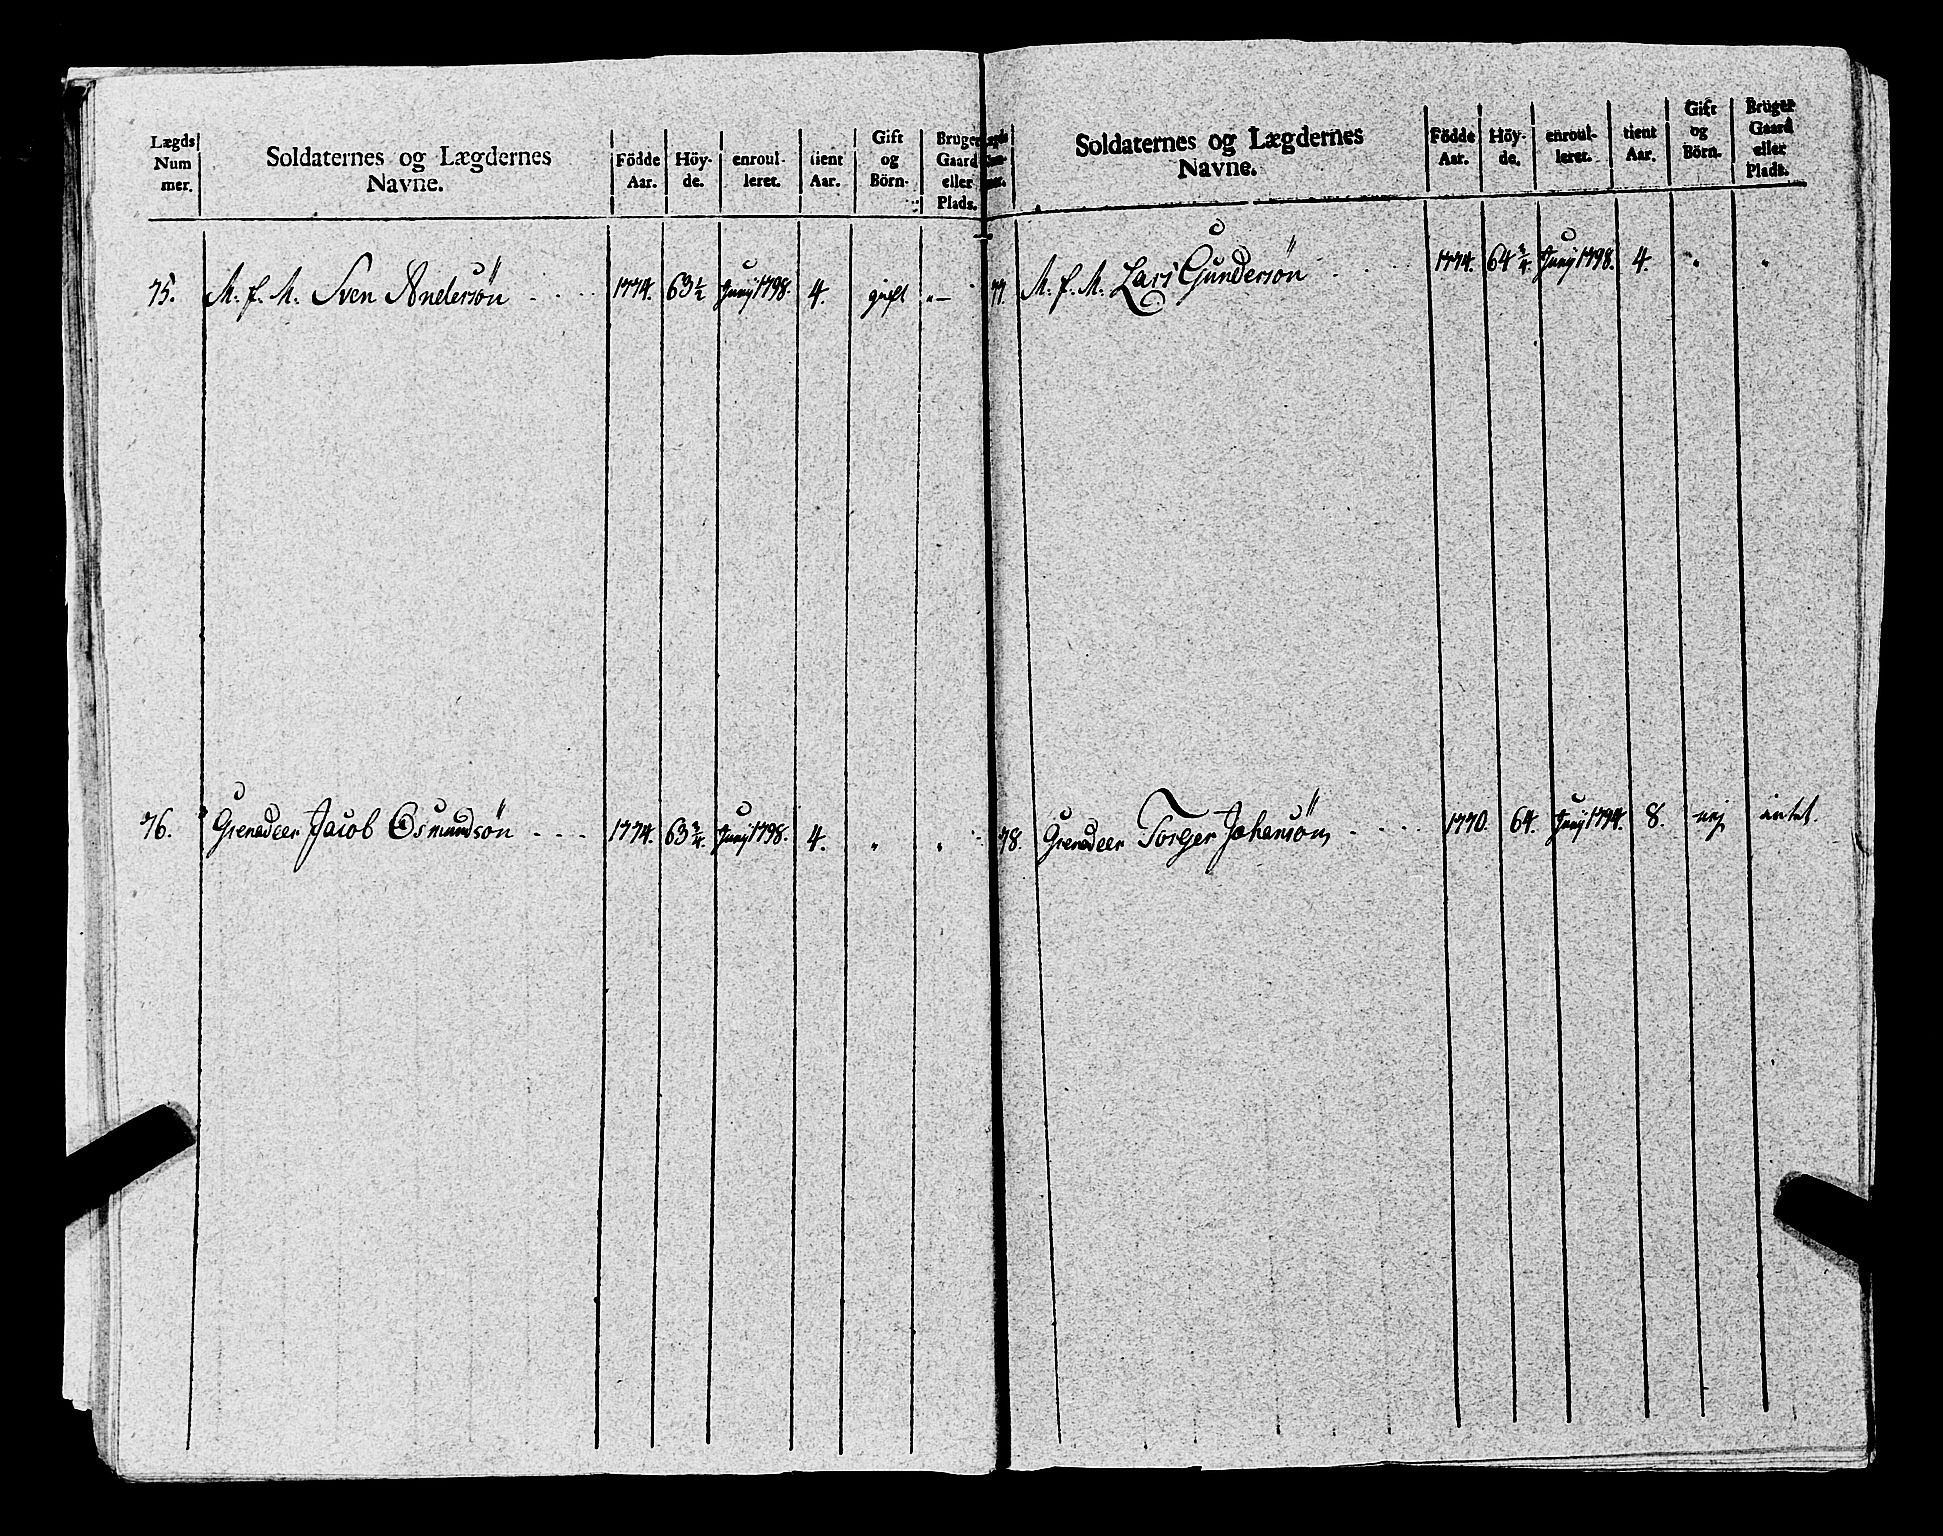 Lægds Num mer. | Soldaternes og Lægdernes Navne. | Födde Aar. | Höy- de. | enroul- leret. | tient Aar. | Gift og Börn. | Bruger Gaard eller Plads.
75. M. f. M. Sven Andersön . . . . 1774. 63 1/2 Junÿ 1798. 4. gift „ —
76. Grenadeer Jacob Osmundsön . . . . 1774. 63 3/4. Junÿ 1798. 4. „ „
Soldaternes og Lægdernes Navne. | Födde Aar. | Höy- de. | enroul- leret. | tient Aar. | Gift og Börn. | Bruger Gaard eller Plads.
77. M. f. M. Lars Gundersön . . . . 1774. 64 3/4. Junÿ 1798. 4. „ „
78. Grenadeer Torger Johansön, . . . . 1770. 64. Junÿ 1794. 8. nej intet.